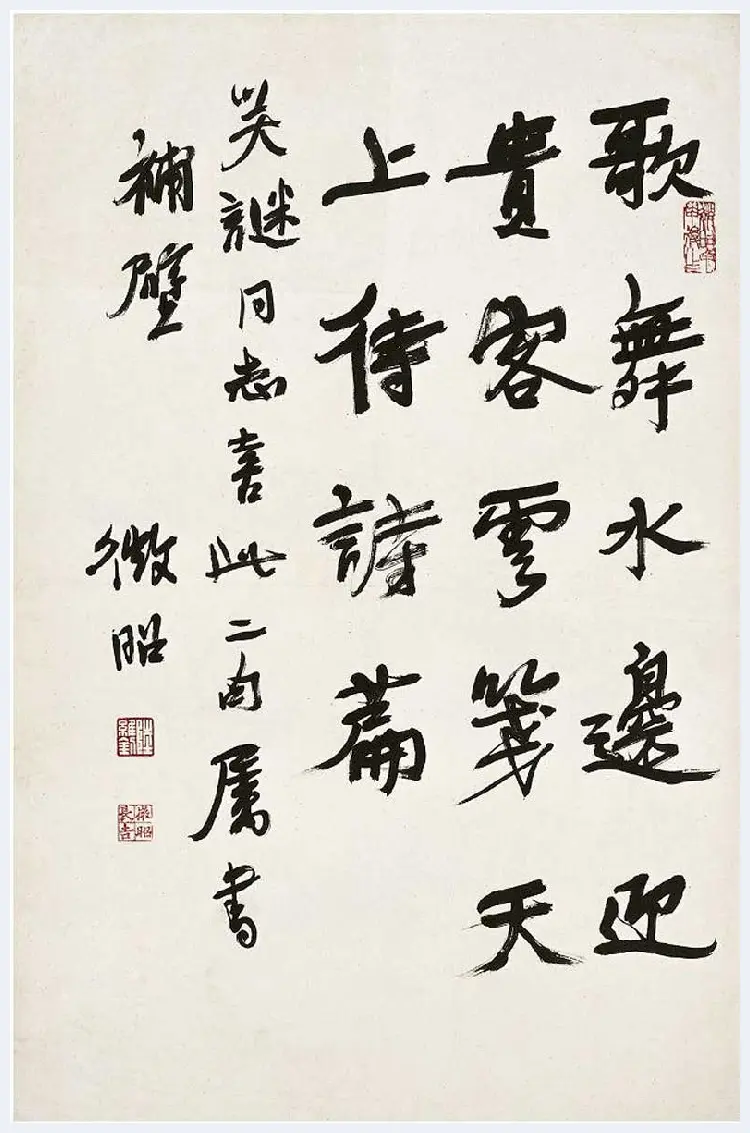 歌舞水邊迎
貴客雲箋天
上待詩篇
笑謎同志喜此二句屬書
補壁
微昭
陸維釗